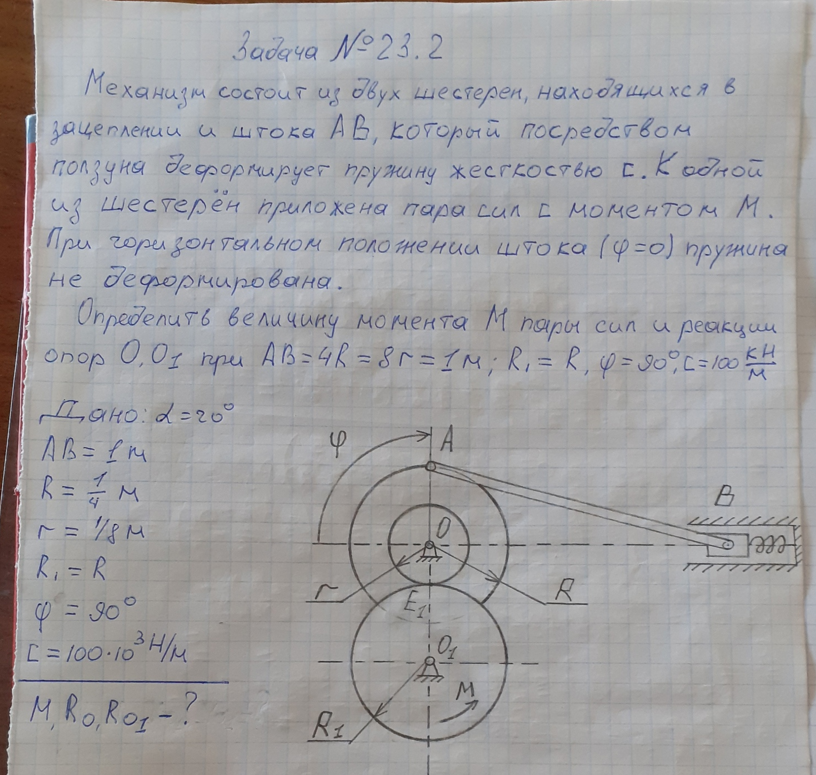 Задача №23.2
Механизм состоит из двух шестерен, находящихся в
зацеплении и штока AB, который посредством
ползуна деформирует пружину жесткостью c. К одной
из шестерён приложена пара сил с моментом M.
При горизонтальном положении штока (φ=0) пружина
не деформирована.
Определить величину момента M пары сил и реакции
опор O, O₁ при AB=4R=8r=1м; R₁=R, φ=90°, c=100 кН/м
Дано: α=20°
AB=1м
R=1/4 м
r=1/8 м
R₁=R
φ=90°
c=100·10³ Н/м
M, R_O, R_O1 - ?
φ
A
B
O
r
R
E₁
O₁
M
R₁